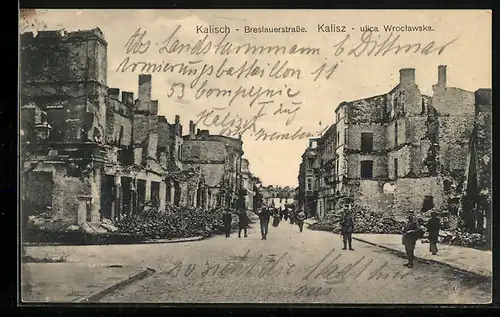 Kalisch - Breslauerstraße. Kalisz - ulica Wrocławska.
Abs Landsturmmann b Dittmar
Armierungsbattaillon 11
53 Compagnie I Zug
Kalisz
So sieht die Stadt
aus